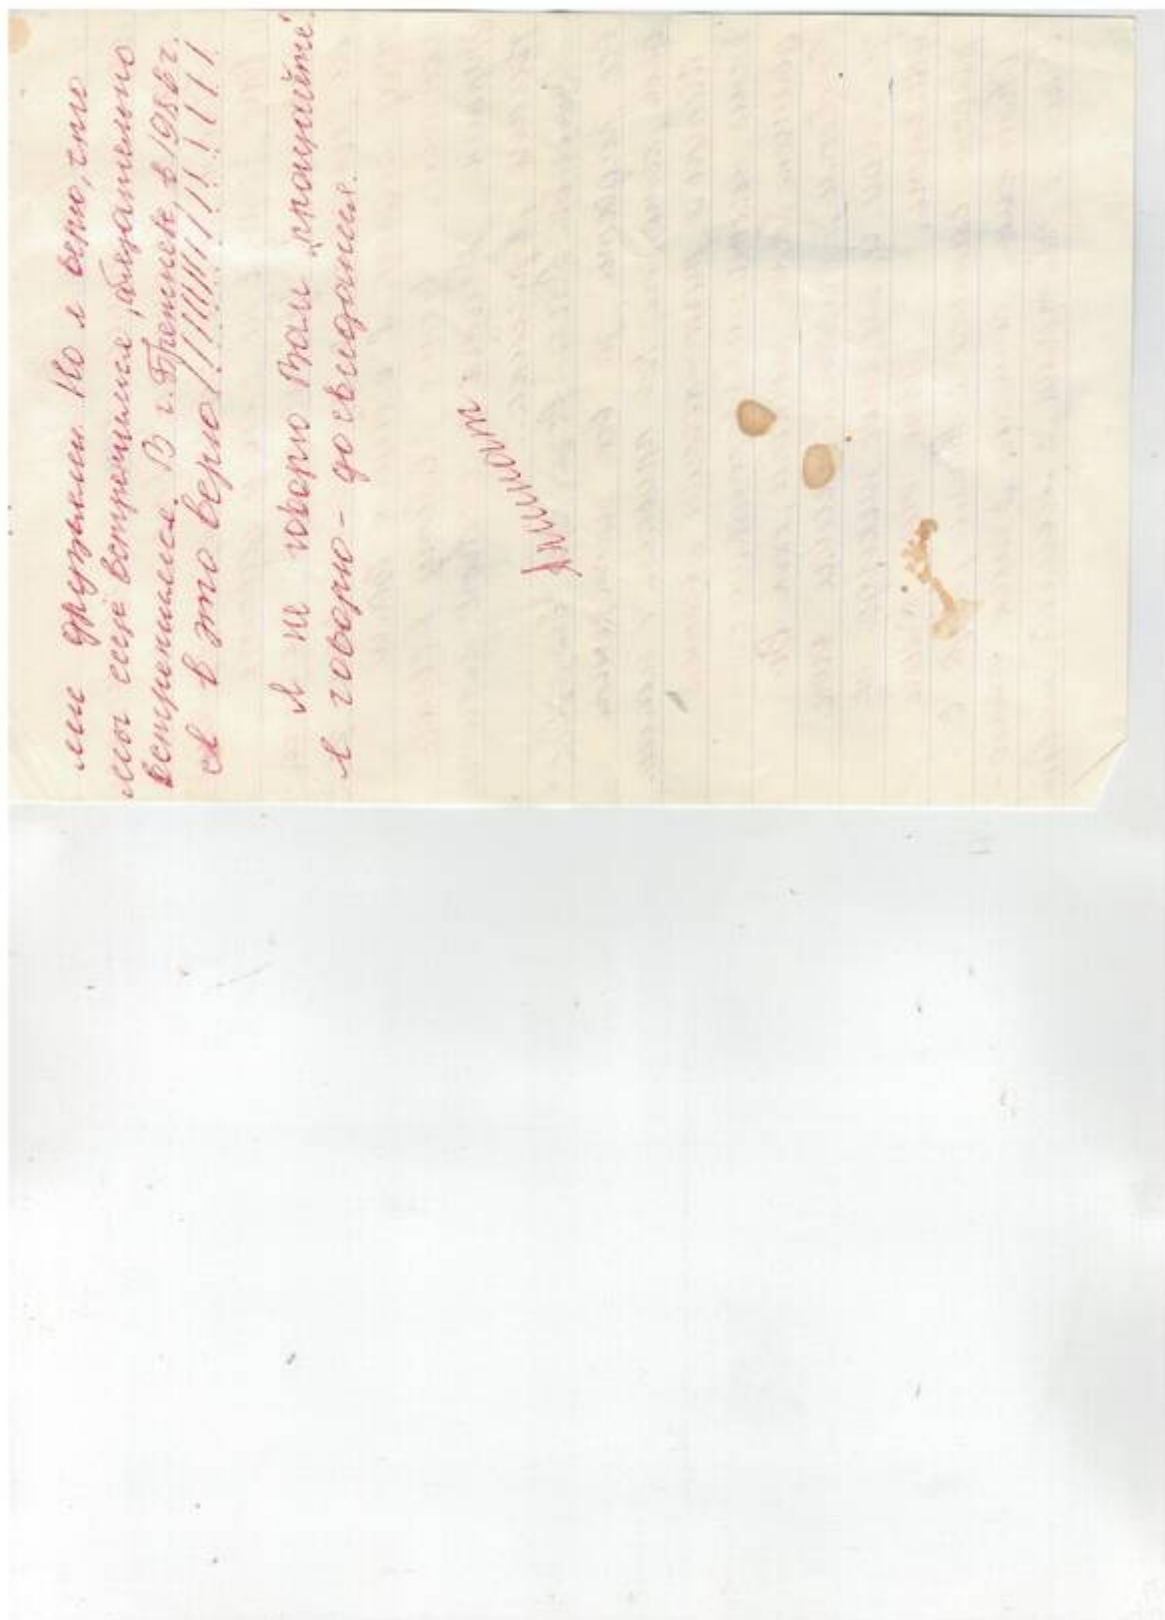 ми друзьями. Но я верю, что
мы ещё встретимся, обязательно
встретимся. В г. Брянске, в 1986 г.
Я в это верю!!!!!!!!!!!!!!!
Я не говорю Вам „прощайте"
я говорю - до свидания.